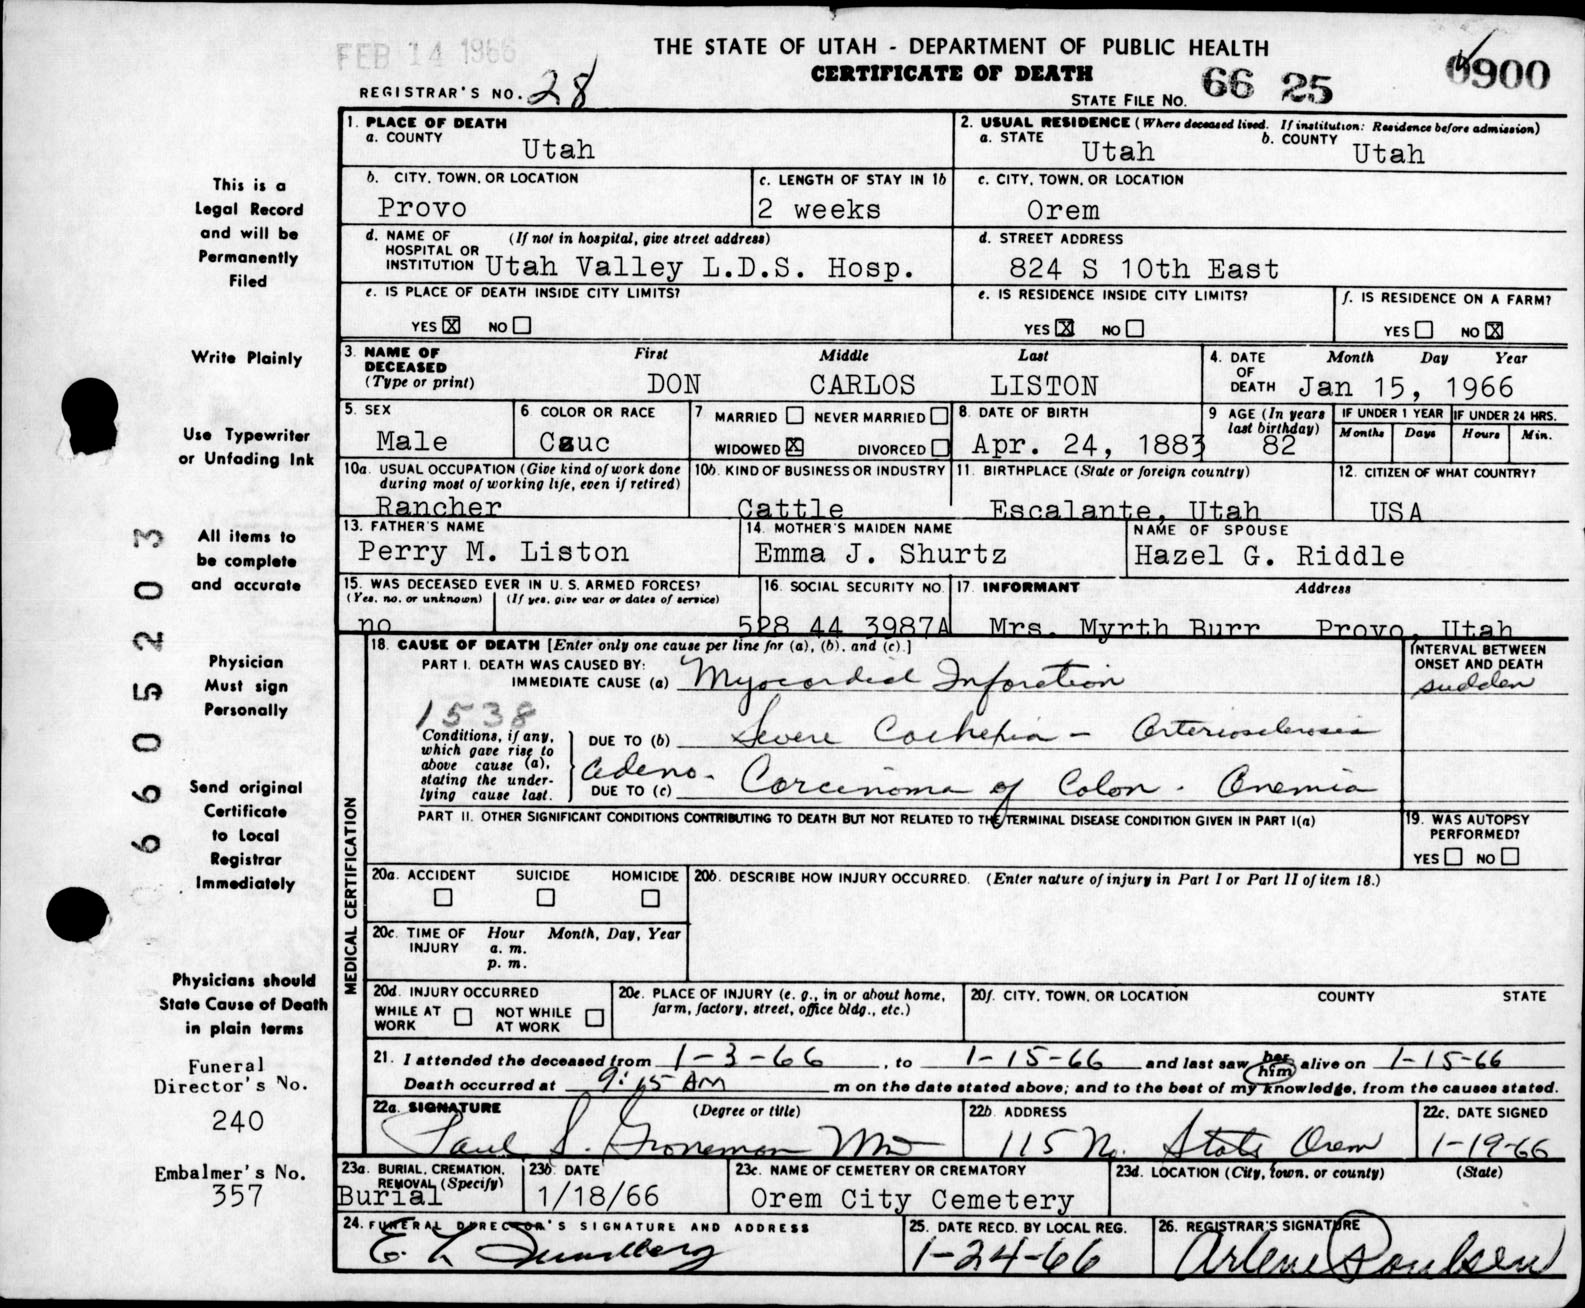 FEB 14 1966
THE STATE OF UTAH - DEPARTMENT OF PUBLIC HEALTH
CERTIFICATE OF DEATH
REGISTRAR'S NO. 28
STATE FILE NO. 66 25 0900
This is a
Legal Record
and will be
Permanently
Filed
Write Plainly
Use Typewriter
or Unfading Ink
All items to
be complete
and accurate
Physician
Must sign
Personally
Send original
Certificate
to Local
Registrar
Immediately
Physicians should
State Cause of Death
in plain terms
Funeral
Director's No.
240
Embalmer's No.
357
6605203
1. PLACE OF DEATH
a. COUNTY
Utah
2. USUAL RESIDENCE (Where deceased lived. If institution: Residence before admission)
a. STATE
Utah
b. COUNTY
Utah
b. CITY, TOWN, OR LOCATION
Provo
c. LENGTH OF STAY IN 1b
2 weeks
c. CITY, TOWN, OR LOCATION
Orem
d. NAME OF HOSPITAL OR INSTITUTION
(If not in hospital, give street address)
Utah Valley L.D.S. Hosp.
d. STREET ADDRESS
824 S 10th East
e. IS PLACE OF DEATH INSIDE CITY LIMITS?
YES X NO
e. IS RESIDENCE INSIDE CITY LIMITS?
YES X NO
f. IS RESIDENCE ON A FARM?
YES NO X
3. NAME OF DECEASED
(Type or print)
First Middle Last
DON CARLOS LISTON
4. DATE OF DEATH
Month Day Year
Jan 15, 1966
5. SEX
Male
6 COLOR OR RACE
Cauc
7 MARRIED NEVER MARRIED
WIDOWED X DIVORCED
8. DATE OF BIRTH
Apr. 24, 1883
9 AGE (In years last birthday)
82
IF UNDER 1 YEAR
Months Days
IF UNDER 24 HRS.
Hours Min.
10a. USUAL OCCUPATION (Give kind of work done
during most of working life, even if retired)
Rancher
10b. KIND OF BUSINESS OR INDUSTRY
Cattle
11. BIRTHPLACE (State or foreign country)
Escalante, Utah
12. CITIZEN OF WHAT COUNTRY?
USA
13. FATHER'S NAME
Perry M. Liston
14. MOTHER'S MAIDEN NAME
Emma J. Shurtz
NAME OF SPOUSE
Hazel G. Riddle
15. WAS DECEASED EVER IN U.S. ARMED FORCES?
(Yes, no, or unknown) (If yes, give war or dates of service)
no
16. SOCIAL SECURITY NO.
528 44 3987A
17. INFORMANT Address
Mrs. Myrth Burr Provo, Utah
MEDICAL CERTIFICATION
18. CAUSE OF DEATH [Enter only one cause per line for (a), (b), and (c).]
INTERVAL BETWEEN
ONSET AND DEATH
PART I. DEATH WAS CAUSED BY:
IMMEDIATE CAUSE (a) Myocardial Infarction
sudden
1538
Conditions, if any,
which gave rise to
above cause (a),
stating the under-
lying cause last.
DUE TO (b) Severe Cachexia - Arteriosclerosis
DUE TO (c) Adeno-Carcinoma of Colon - Anemia
PART II. OTHER SIGNIFICANT CONDITIONS CONTRIBUTING TO DEATH BUT NOT RELATED TO THE TERMINAL DISEASE CONDITION GIVEN IN PART I(a)
19. WAS AUTOPSY
PERFORMED?
YES NO
20a. ACCIDENT SUICIDE HOMICIDE
20b. DESCRIBE HOW INJURY OCCURRED. (Enter nature of injury in Part I or Part II of item 18.)
20c. TIME OF INJURY
Hour Month, Day, Year
a. m.
p. m.
20d. INJURY OCCURRED
WHILE AT WORK NOT WHILE AT WORK
20e. PLACE OF INJURY (e. g., in or about home,
farm, factory, street, office bldg., etc.)
20f. CITY, TOWN, OR LOCATION COUNTY STATE
21. I attended the deceased from 1-3-66, to 1-15-66 and last saw her him alive on 1-15-66
Death occurred at 9:15 AM m on the date stated above; and to the best of my knowledge, from the causes stated.
22a. SIGNATURE (Degree or title)
Paul S. Groneman MD
22b. ADDRESS
115 No. State Orem
22c. DATE SIGNED
1-19-66
23a. BURIAL, CREMATION,
REMOVAL (Specify)
Burial
23b. DATE
1/18/66
23c. NAME OF CEMETERY OR CREMATORY
Orem City Cemetery
23d. LOCATION (City, town, or county) (State)
24. FUNERAL DIRECTOR'S SIGNATURE AND ADDRESS
25. DATE RECD. BY LOCAL REG.
1-24-66
26. REGISTRAR'S SIGNATURE
Arlene Poulsen